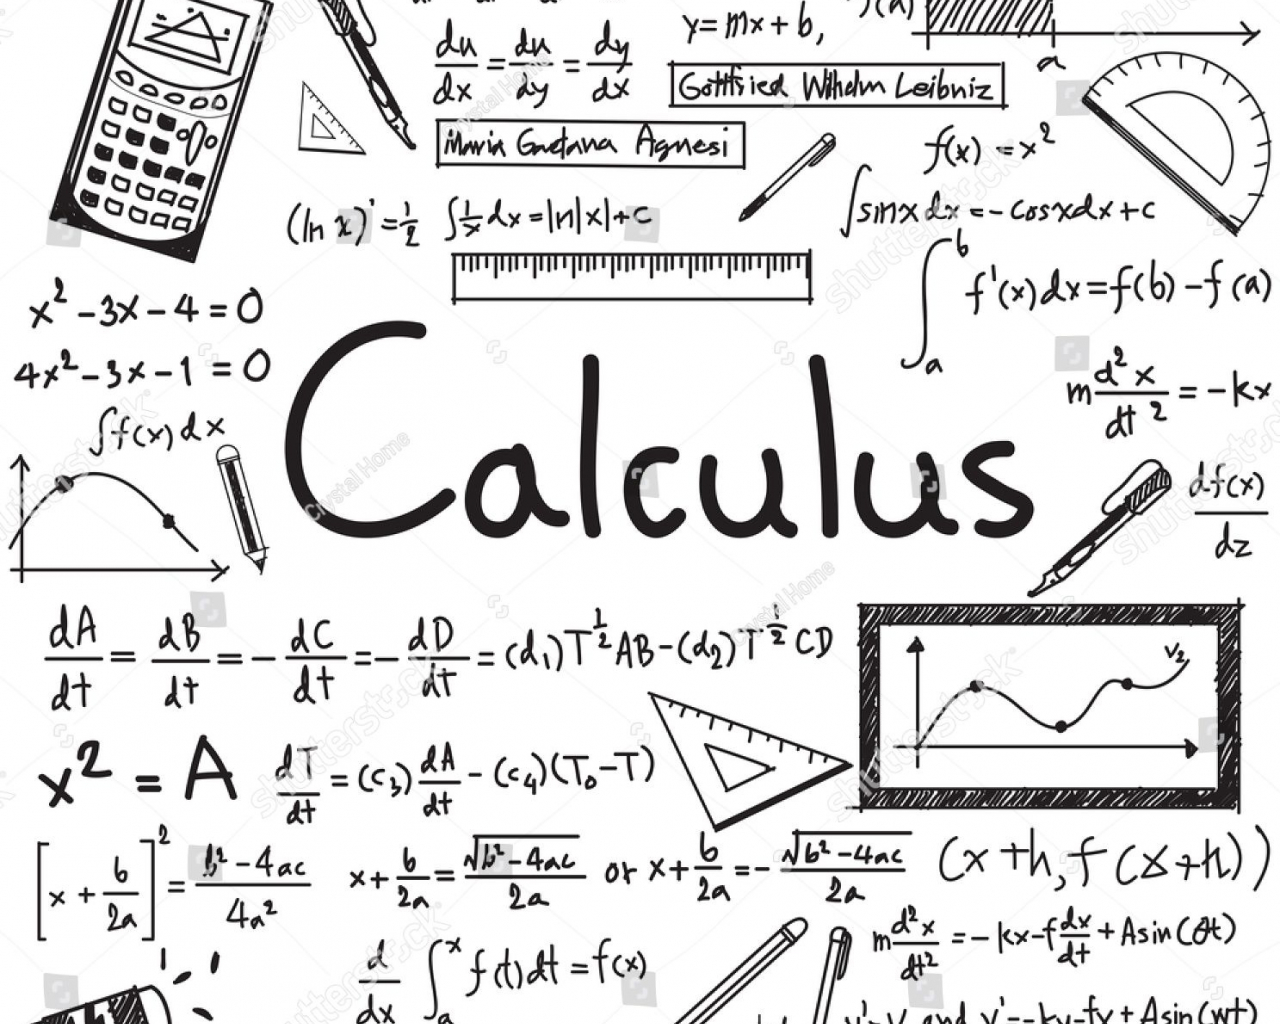 y = mx + b,
du/dx = du/dy = dy/dx
a
Gottfried Wilhelm Leibniz
Maria Gaetana Agnesi
f(x) = x²
(ln x)' = 1/2
∫ 1/x dx = ln|x| + c
∫ sinx dx = - cosxdx + c
∫ₐᵇ f'(x) dx = f(b) - f(a)
x² - 3x - 4 = 0
4x² - 3x - 1 = 0
m d²x/dt² = - kx
∫ f(x) dx
Calculus
df(x)/dz
dA/dt = dB/dt = - dC/dt = - dD/dt = (d₁)T^½ AB - (d₂)T^½ CD
V₂
x² = A
dT/dt = (c₃) dA/dt - (c₄)(T₀ - T)
[x + b/2a]² = b² - 4ac/4a²
x + b/2a = √b² - 4ac/2a or x + b/2a = - √b² - 4ac/2a
(x + h, f(x + h))
m d²x/dt² = - kx - f dx/dt + Asin(
d/dx ∫ₐˣ f(t)dt = f(x)
and v' = - kv - fv + Asin(wt)
shutterstock
Crystal Home